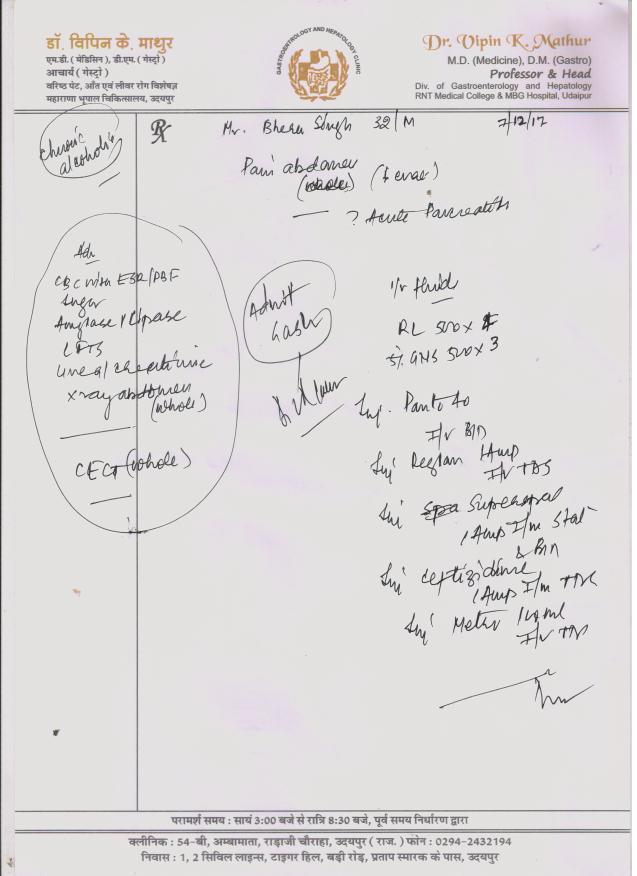 डॉ. विपिन के. माथुर
एम.डी. ( मेडिसिन ), डी.एम. ( गेस्ट्रो )
आचार्य ( गेस्ट्रो )
वरिष्ठ पेट, आँत एवं लीवर रोग विशेषज्ञ
महाराणा भूपाल चिकित्सालय, उदयपुर
GASTROENTEROLOGY AND HEPATOLOGY CLINIC
Dr. Vipin K. Mathur
M.D. (Medicine), D.M. (Gastro)
Professor & Head
Div. of Gastroenterology and Hepatology
RNT Medical College & MBG Hospital, Udaipur
chronic
alcoholic
Rx
Mr. Bheru Singh 32/M 7/12/17
Pain abdomen
(whole)
? Acute Pancreatitis
Adv
CBC with ESR/PBF
Sugar
Amylase / Lipase
LFTS
Urea / creatinine
xray abdomen
(whole)
CECT (whole)
Admit
Gastro
I/v fluid
RL 500 x 4
5% GNS 500 x 3
Inj. Panto 40
I/v BD
Inj Reglan 1Amp
I/v TDS
Inj
1Amp I/m Stat
& BD
Inj
1Amp I/m
Inj Metro 100ml
I/v TDS
परामर्श समय : सायं 3:00 बजे से रात्रि 8:30 बजे, पूर्व समय निर्धारण द्वारा
क्लीनिक : 54-बी, अम्बामाता, राड़ाजी चौराहा, उदयपुर ( राज. ) फोन : 0294-2432194
निवास : 1, 2 सिविल लाइन्स, टाइगर हिल, बड़ी रोड़, प्रताप स्मारक के पास, उदयपुर